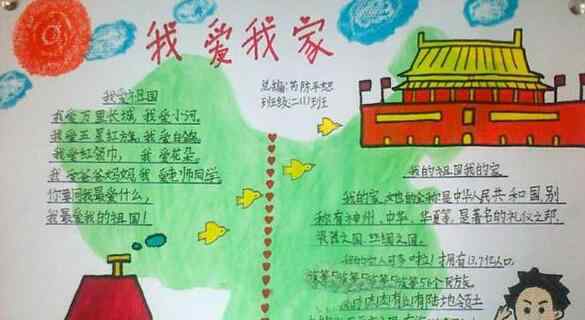 我爱我家
我爱祖国
我爱万里长城,我爱小河。
我爱五星红旗,我爱白鸽。
我爱红领巾,我爱花朵。
我爱爸爸妈妈,我爱老师同学。
你要问我最爱什么,
我最爱我的祖国!
总编:
班级:二(1)班
我的祖国我的家
我的家,她的全称是中华人民共和国,别
称有神州、中华、华夏等,是著名的礼仪之邦、
之国、丝绸之国。
我的家人可多啦!拥有13.7亿人口,
56个民族。
有陆地领土